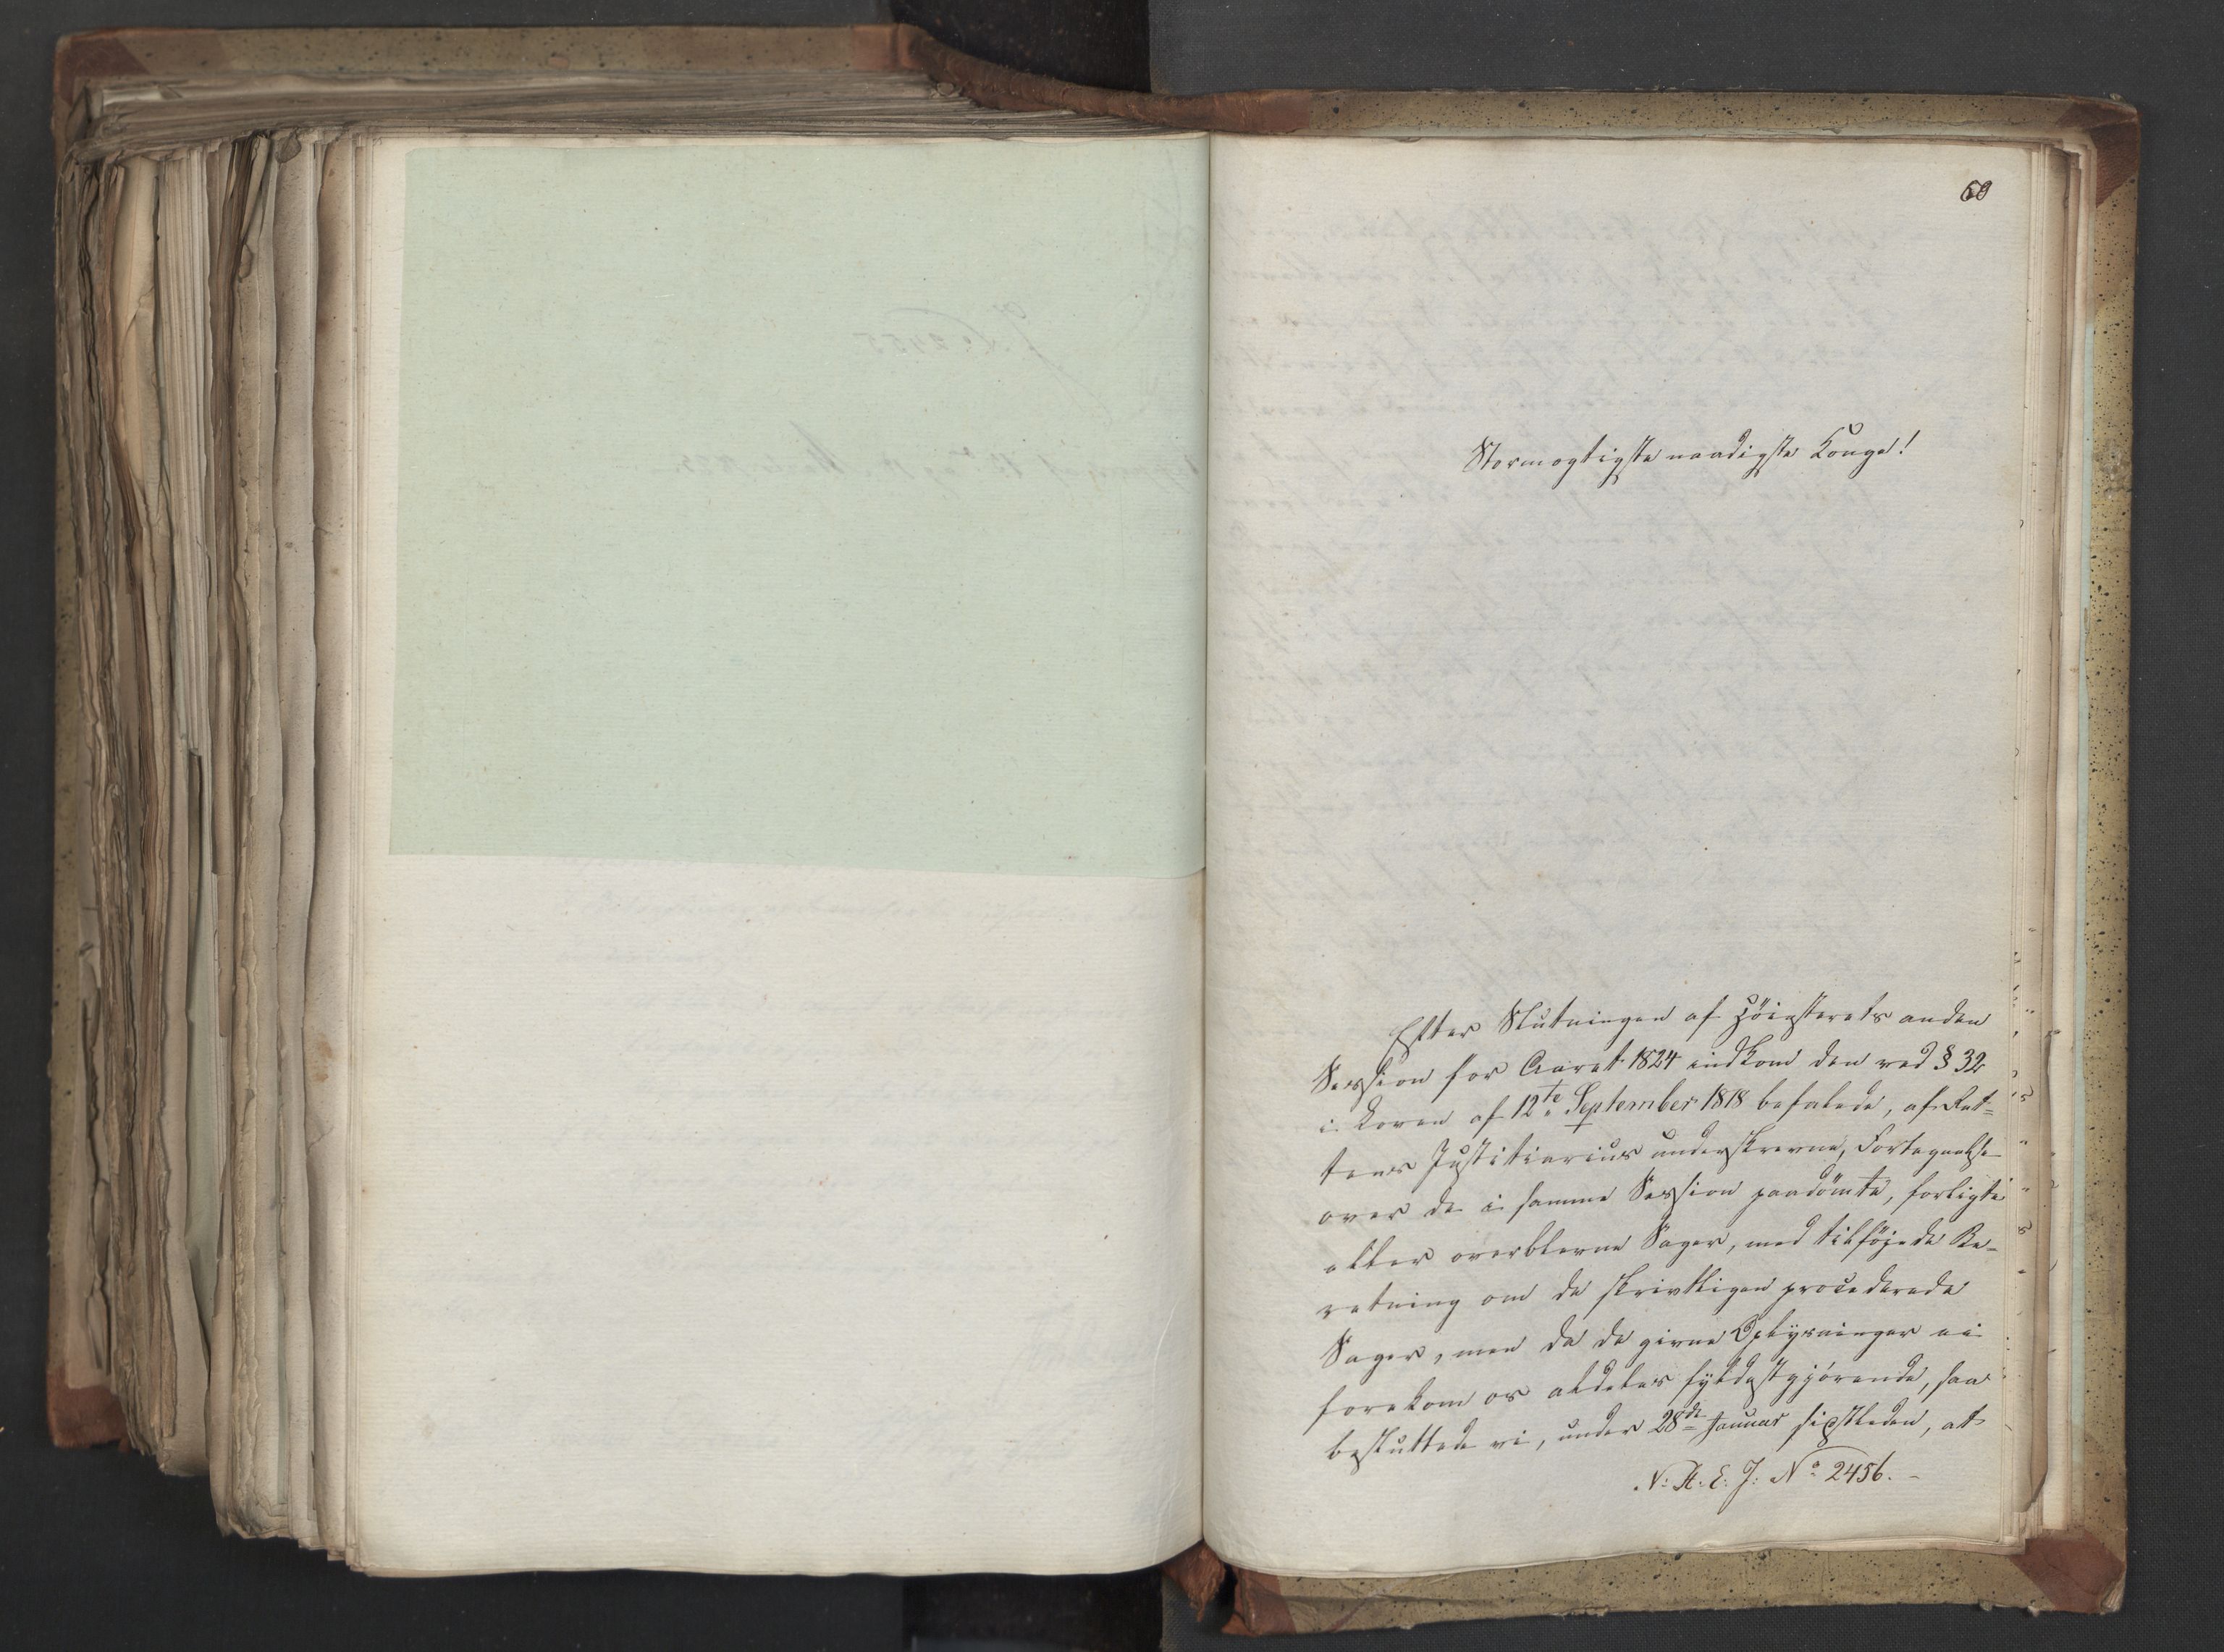 60
Stormægtigste naadigste Konge!
Efter Slutningen af Höiesterets anden
Session for Aaret 1824 indkom den ved § 32
i Loven af 12te September 1818 befalede, af Ret=
tens Justitiarius underskrevne, Fortegnelse
over de i samme Session paadömte, forligte
eller overblevne Sager, med tilföjede Be=
retning om de skriftligen procederede
Sager, men da de givne Oplysninger ei
forekom os aldeles fyldestgjörende, saa
besluttede vi, under 28de Januar sidstleden, at
N: A: E: J: No 2456. -